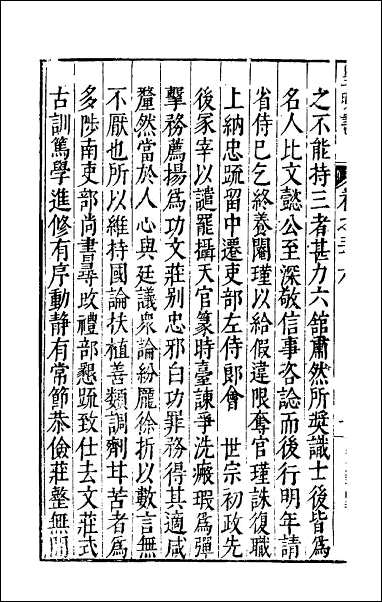 之不能持三者甚力六舘肅然所奬識士後皆爲
名人比文懿公至深敬信事咨訟而後行明年請
省侍已乞終養閹瑾以給假違限奪官瑾誅復職
上納忠疏留中遷吏部左侍郎會　世宗初政先
後冢宰以譴罷攝天官篆時臺諫爭洗瘢瑕爲彈
擊務薦揚爲功文莊别忠邪白功罪務得其適咸
釐然當於人心與廷議衆論紛厖徐折以數言無
不厭也所以維持國論扶植善類調劑甘苦者爲
多陟南吏部尚書尋改禮部懇疏致仕去文莊式
古訓篤學進修有序動靜有常節恭儉莊整無閒